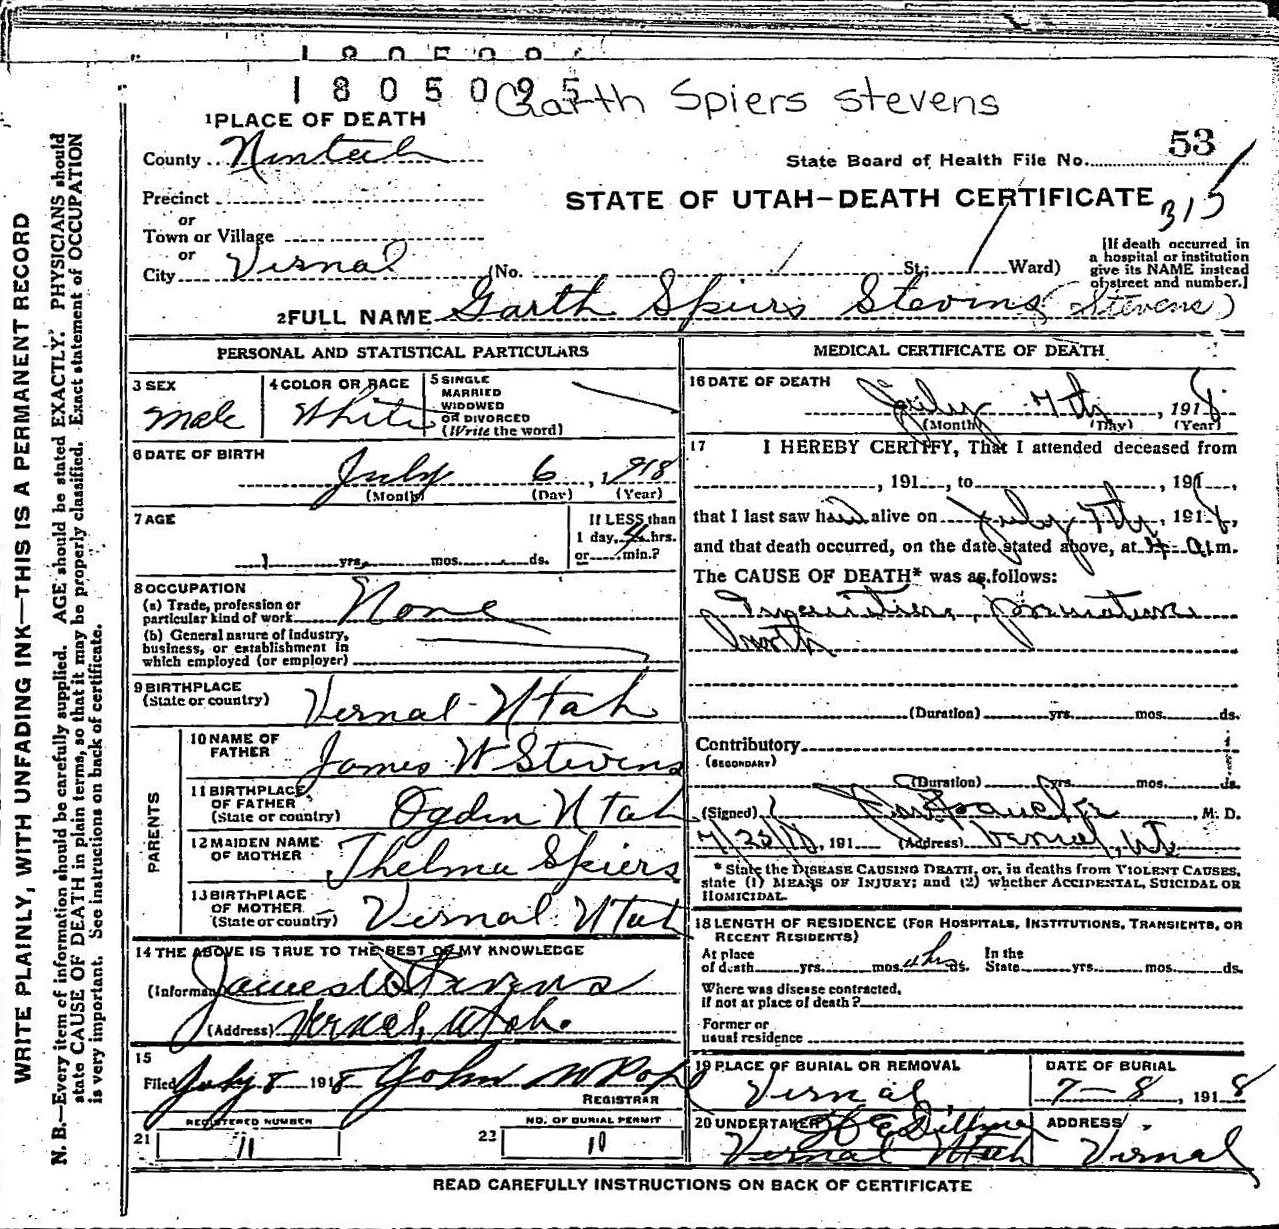 1805095
Garth Spiers Stevens
1 PLACE OF DEATH
County
State Board of Health File No. 53
Precinct
STATE OF UTAH—DEATH CERTIFICATE
315
or
Town or Village
or
City Vernal (No. St; Ward)
[If death occurred in
a hospital or institution
give its NAME instead
of street and number.]
2 FULL NAME Garth Spiers Stevins (Stevens)
PERSONAL AND STATISTICAL PARTICULARS
3 SEX
Male
4 COLOR OR RACE
White
5 SINGLE
MARRIED
WIDOWED
OR DIVORCED
(Write the word)
6 DATE OF BIRTH
July 6, 1918
(Month) (Day) (Year)
7 AGE
yrs. mos. ds.
If LESS than
1 day, 4 hrs.
or min.?
8 OCCUPATION
(a) Trade, profession or
particular kind of work None
(b) General nature of industry,
business, or establishment in
which employed (or employer)
9 BIRTHPLACE
(State or country) Vernal-Utah
PARENTS
10 NAME OF
FATHER James W Stevens
11 BIRTHPLACE
OF FATHER
(State or country) Ogden Utah
12 MAIDEN NAME
OF MOTHER Thelma Spiers
13 BIRTHPLACE
OF MOTHER
(State or country) Vernal Utah
14 THE ABOVE IS TRUE TO THE BEST OF MY KNOWLEDGE
(Informant) James W Stevens
(Address) Vernal, Utah.
15
Filed July 8 1918 John N Pope
REGISTRAR
21 REGISTERED NUMBER
11
23 NO. OF BURIAL PERMIT
10
MEDICAL CERTIFICATE OF DEATH
16 DATE OF DEATH
July 7th, 1918
(Month) (Day) (Year)
17 I HEREBY CERTIFY, That I attended deceased from
, 191 , to , 191 ,
that I last saw him alive on July 7th, 1918,
and that death occurred, on the date stated above, at 4 a.m.
The CAUSE OF DEATH* was as follows:
Inanition, premature
birth
(Duration) yrs. mos. ds.
Contributory
(SECONDARY)
(Duration) yrs. mos. ds.
(Signed) , M. D.
7/25/18, 191 (Address) Vernal, Ut
* State the DISEASE CAUSING DEATH, or, in deaths from VIOLENT CAUSES,
state (1) MEANS OF INJURY; and (2) whether ACCIDENTAL, SUICIDAL OR
HOMICIDAL.
18 LENGTH OF RESIDENCE (FOR HOSPITALS, INSTITUTIONS, TRANSIENTS, OR
RECENT RESIDENTS)
At place
of death yrs. mos. 4 hrs ds.
In the
State yrs. mos. ds.
Where was disease contracted,
if not at place of death?
Former or
usual residence
19 PLACE OF BURIAL OR REMOVAL
Vernal
DATE OF BURIAL
7-8, 1918
20 UNDERTAKER
Vernal Utah
ADDRESS
Vernal
READ CAREFULLY INSTRUCTIONS ON BACK OF CERTIFICATE
WRITE PLAINLY, WITH UNFADING INK—THIS IS A PERMANENT RECORD
N. B.—Every item of information should be carefully supplied. AGE should be stated EXACTLY. PHYSICIANS should
state CAUSE OF DEATH in plain terms, so that it may be properly classified. Exact statement of OCCUPATION
is very important. See instructions on back of certificate.